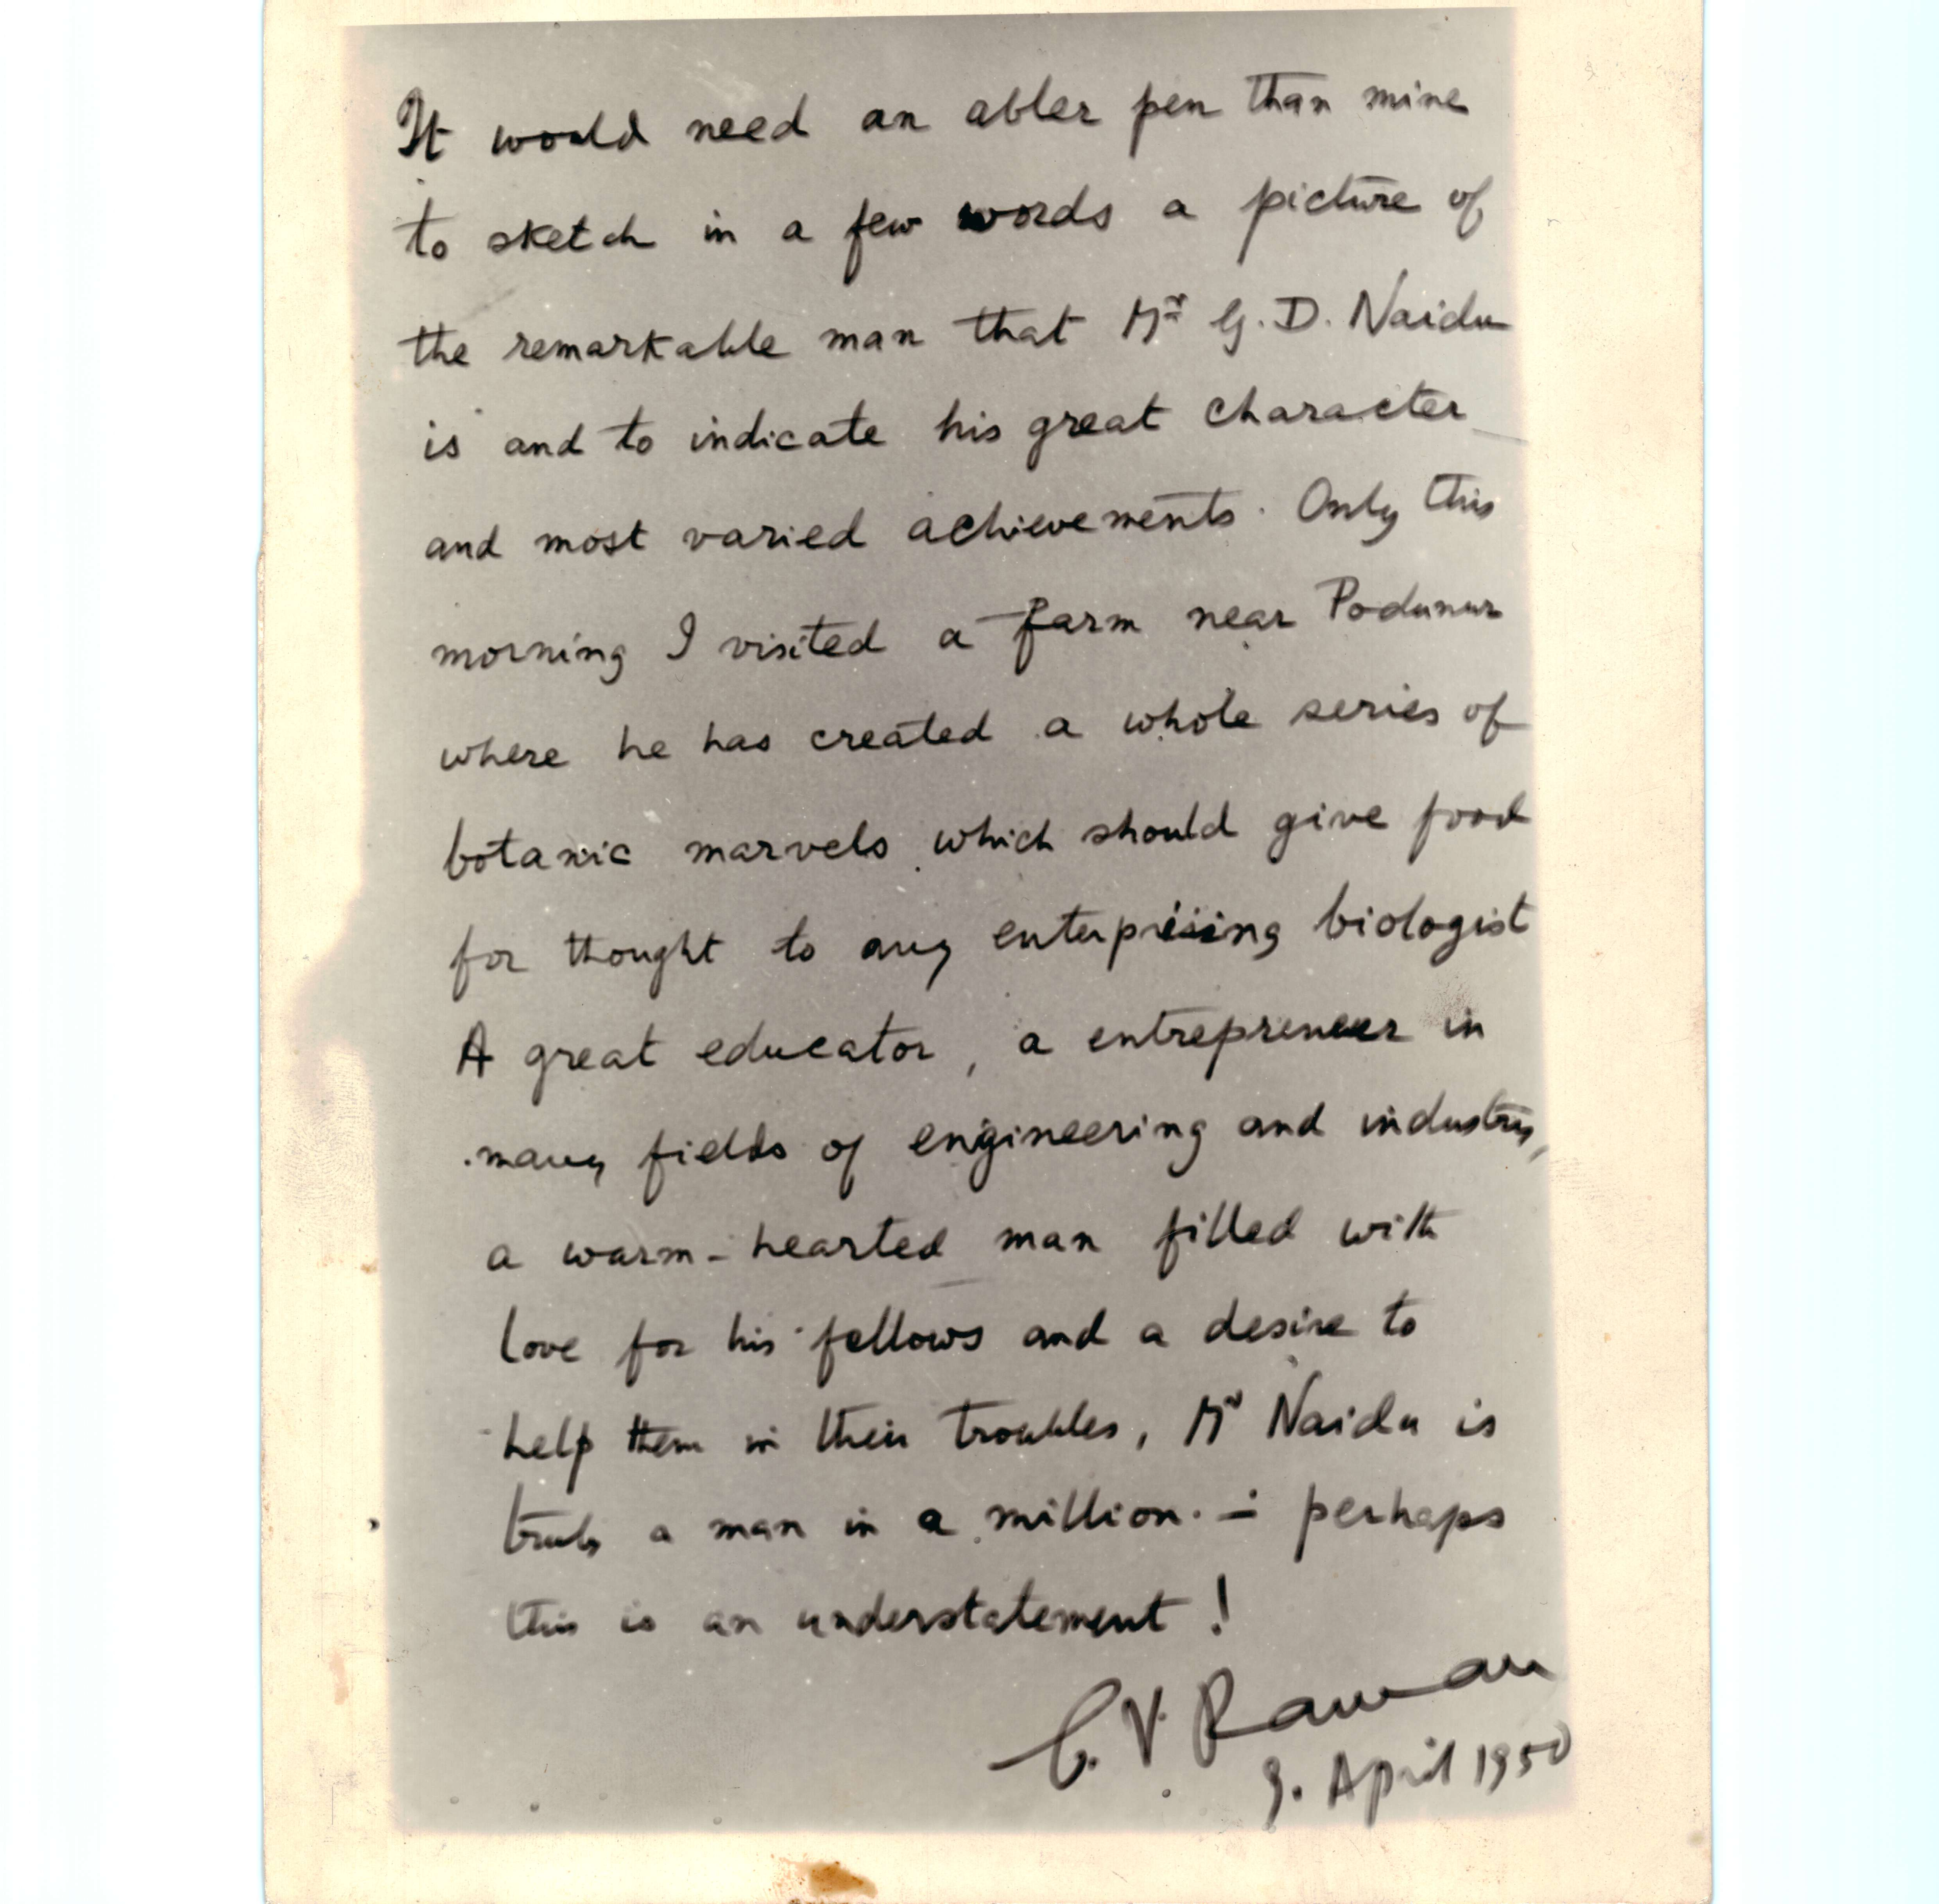 It would need an abler pen than mine
to sketch in a few words a picture of
the remarkable man that Mr G. D. Naidu
is and to indicate his great character
and most varied achievements. Only this
morning I visited a farm near Podunur
where he has created a whole series of
botanic marvels which should give food
for thought to any enterprising biologist
A great educator, a entrepreneur in
many fields of engineering and industry,
a warm-hearted man filled with
love for his fellows and a desire to
help them in their troubles, Mr Naidu is
truly a man in a million. - perhaps
this is an understatement!
C. V. Raman
9. April 1950